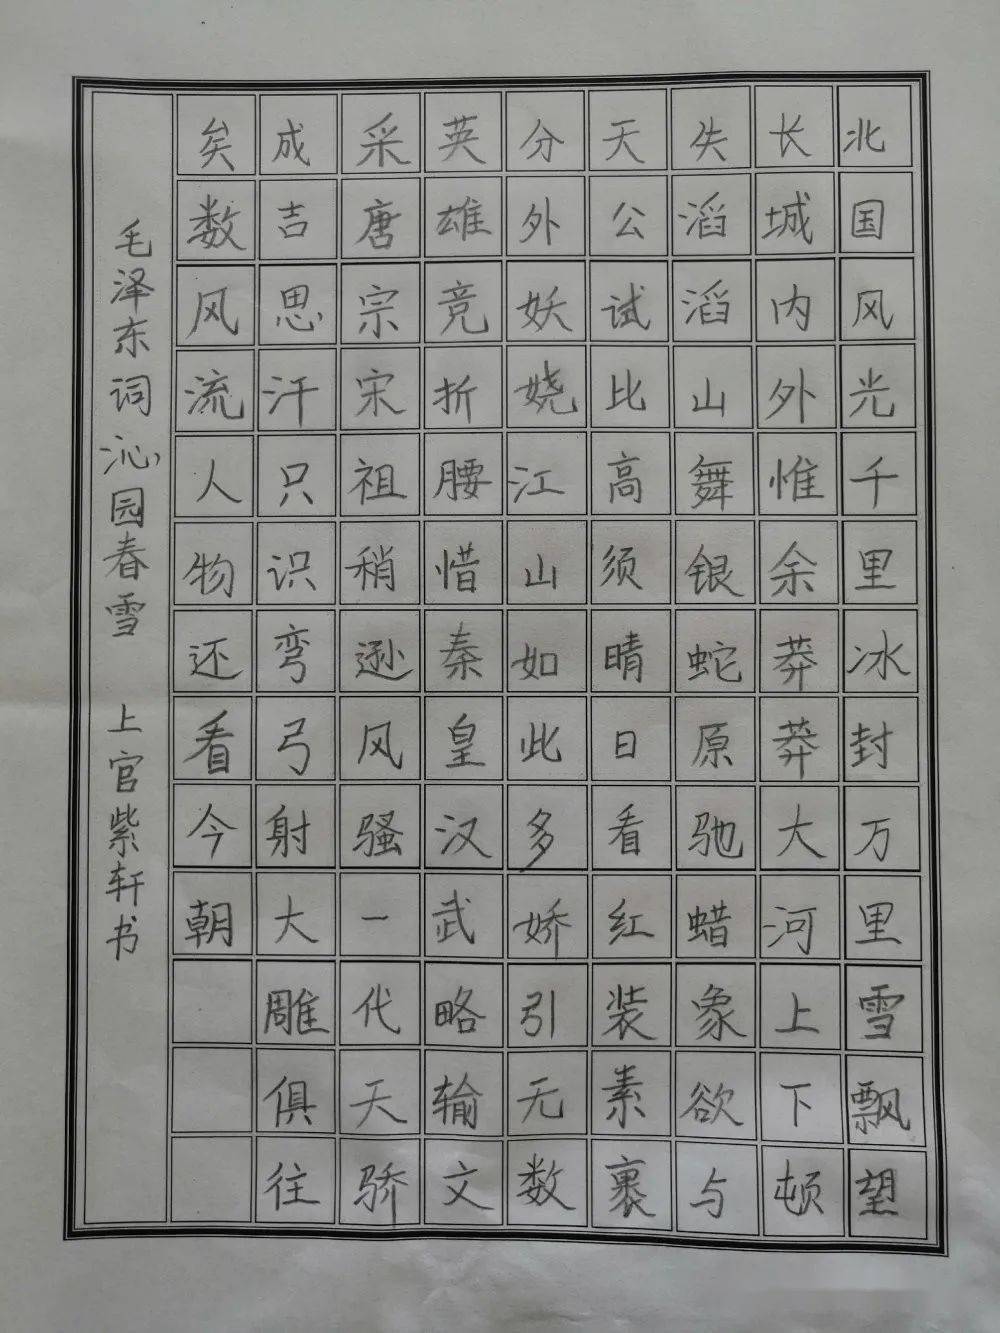 北国风光千里冰封万里雪飘望
长城内外惟余莽莽大河上下顿
失滔滔山舞银蛇原驰蜡象欲与
天公试比高须晴日看红装素裹
分外妖娆江山如此多娇引无数
英雄竞折腰惜秦皇汉武略输文
采唐宗宋祖稍逊风骚一代天骄
成吉思汗只识弯弓射大雕俱往
矣数风流人物还看今朝
毛泽东词沁园春雪 上官紫轩书